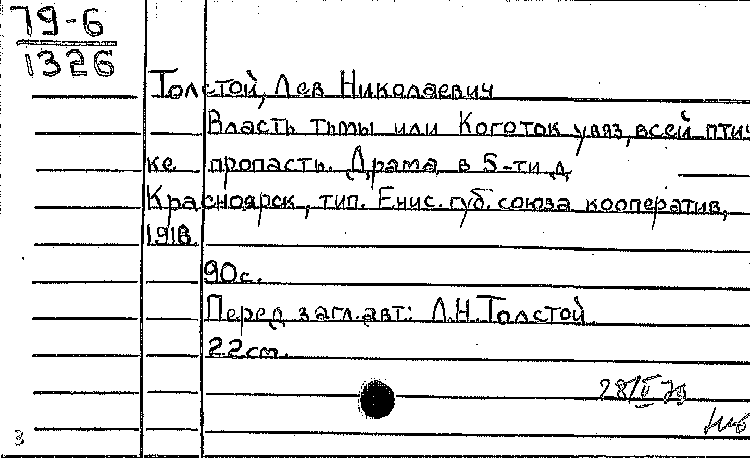 79-6
1326
Толстой, Лев Николаевич
Власть тьмы или Коготок увяз, всей птич
ке пропасть. Драма в 5-ти д.
Красноярск, тип. Енис. губ. союза кооператив,
1918.
90с.
Перед загл. авт: Л.Н.Толстой.
22см.
3